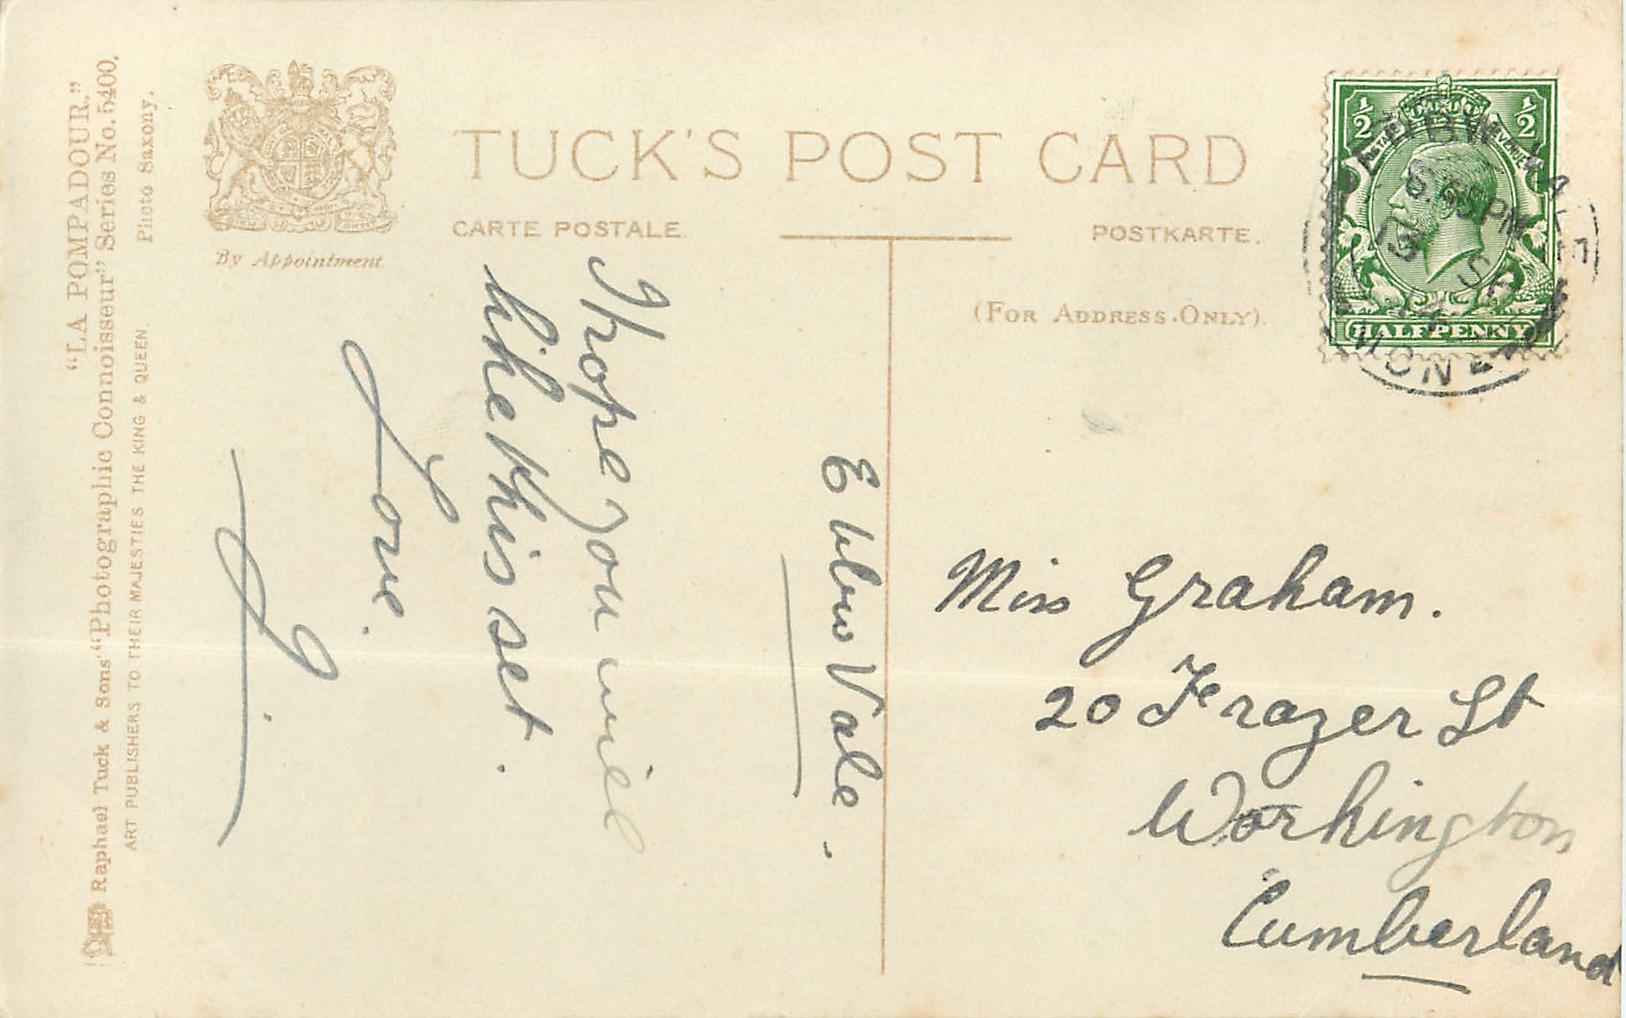 "LA POMPADOUR."
Raphael Tuck & Sons' "Photographic Connoisseur" Series No. 5400.
ART PUBLISHERS TO THEIR MAJESTIES THE KING & QUEEN.
Photo Saxony.
By Appointment.
TUCK'S POST CARD
CARTE POSTALE.
POSTKARTE.
(For Address Only).
½ ½
POSTAGE REVENUE
HALFPENNY
EBBW VALE
6.45 PM
SP
14
MON
Ebbw Vale.
I hope you will
like this set.
Love.
J.
Miss Graham.
20 Frazer St
Workington
Cumberland